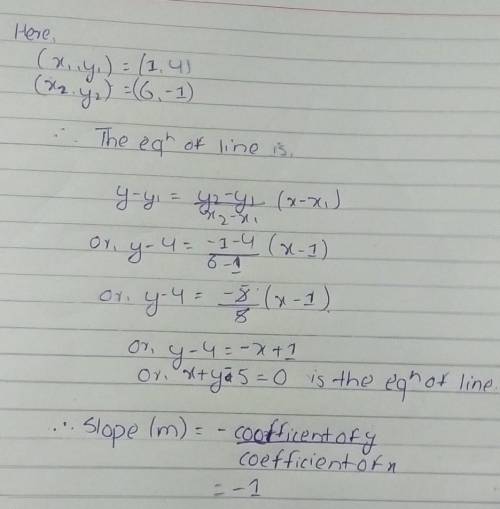 Here,
(x1, y1) = (1, 4)
(x2, y2) = (6, -1)
∴ The eqn of line is,
y-y1 = y2-y1/x2-x1 (x-x1)
or, y-4 = -1-4/6-1 (x-1)
or, y-4 = -5/5 (x-1)
or, y-4 = -x+1
or, x+y-5=0 is the eqn of line.
∴ Slope (m) = - cofficent of y/coefficient of x
= -1